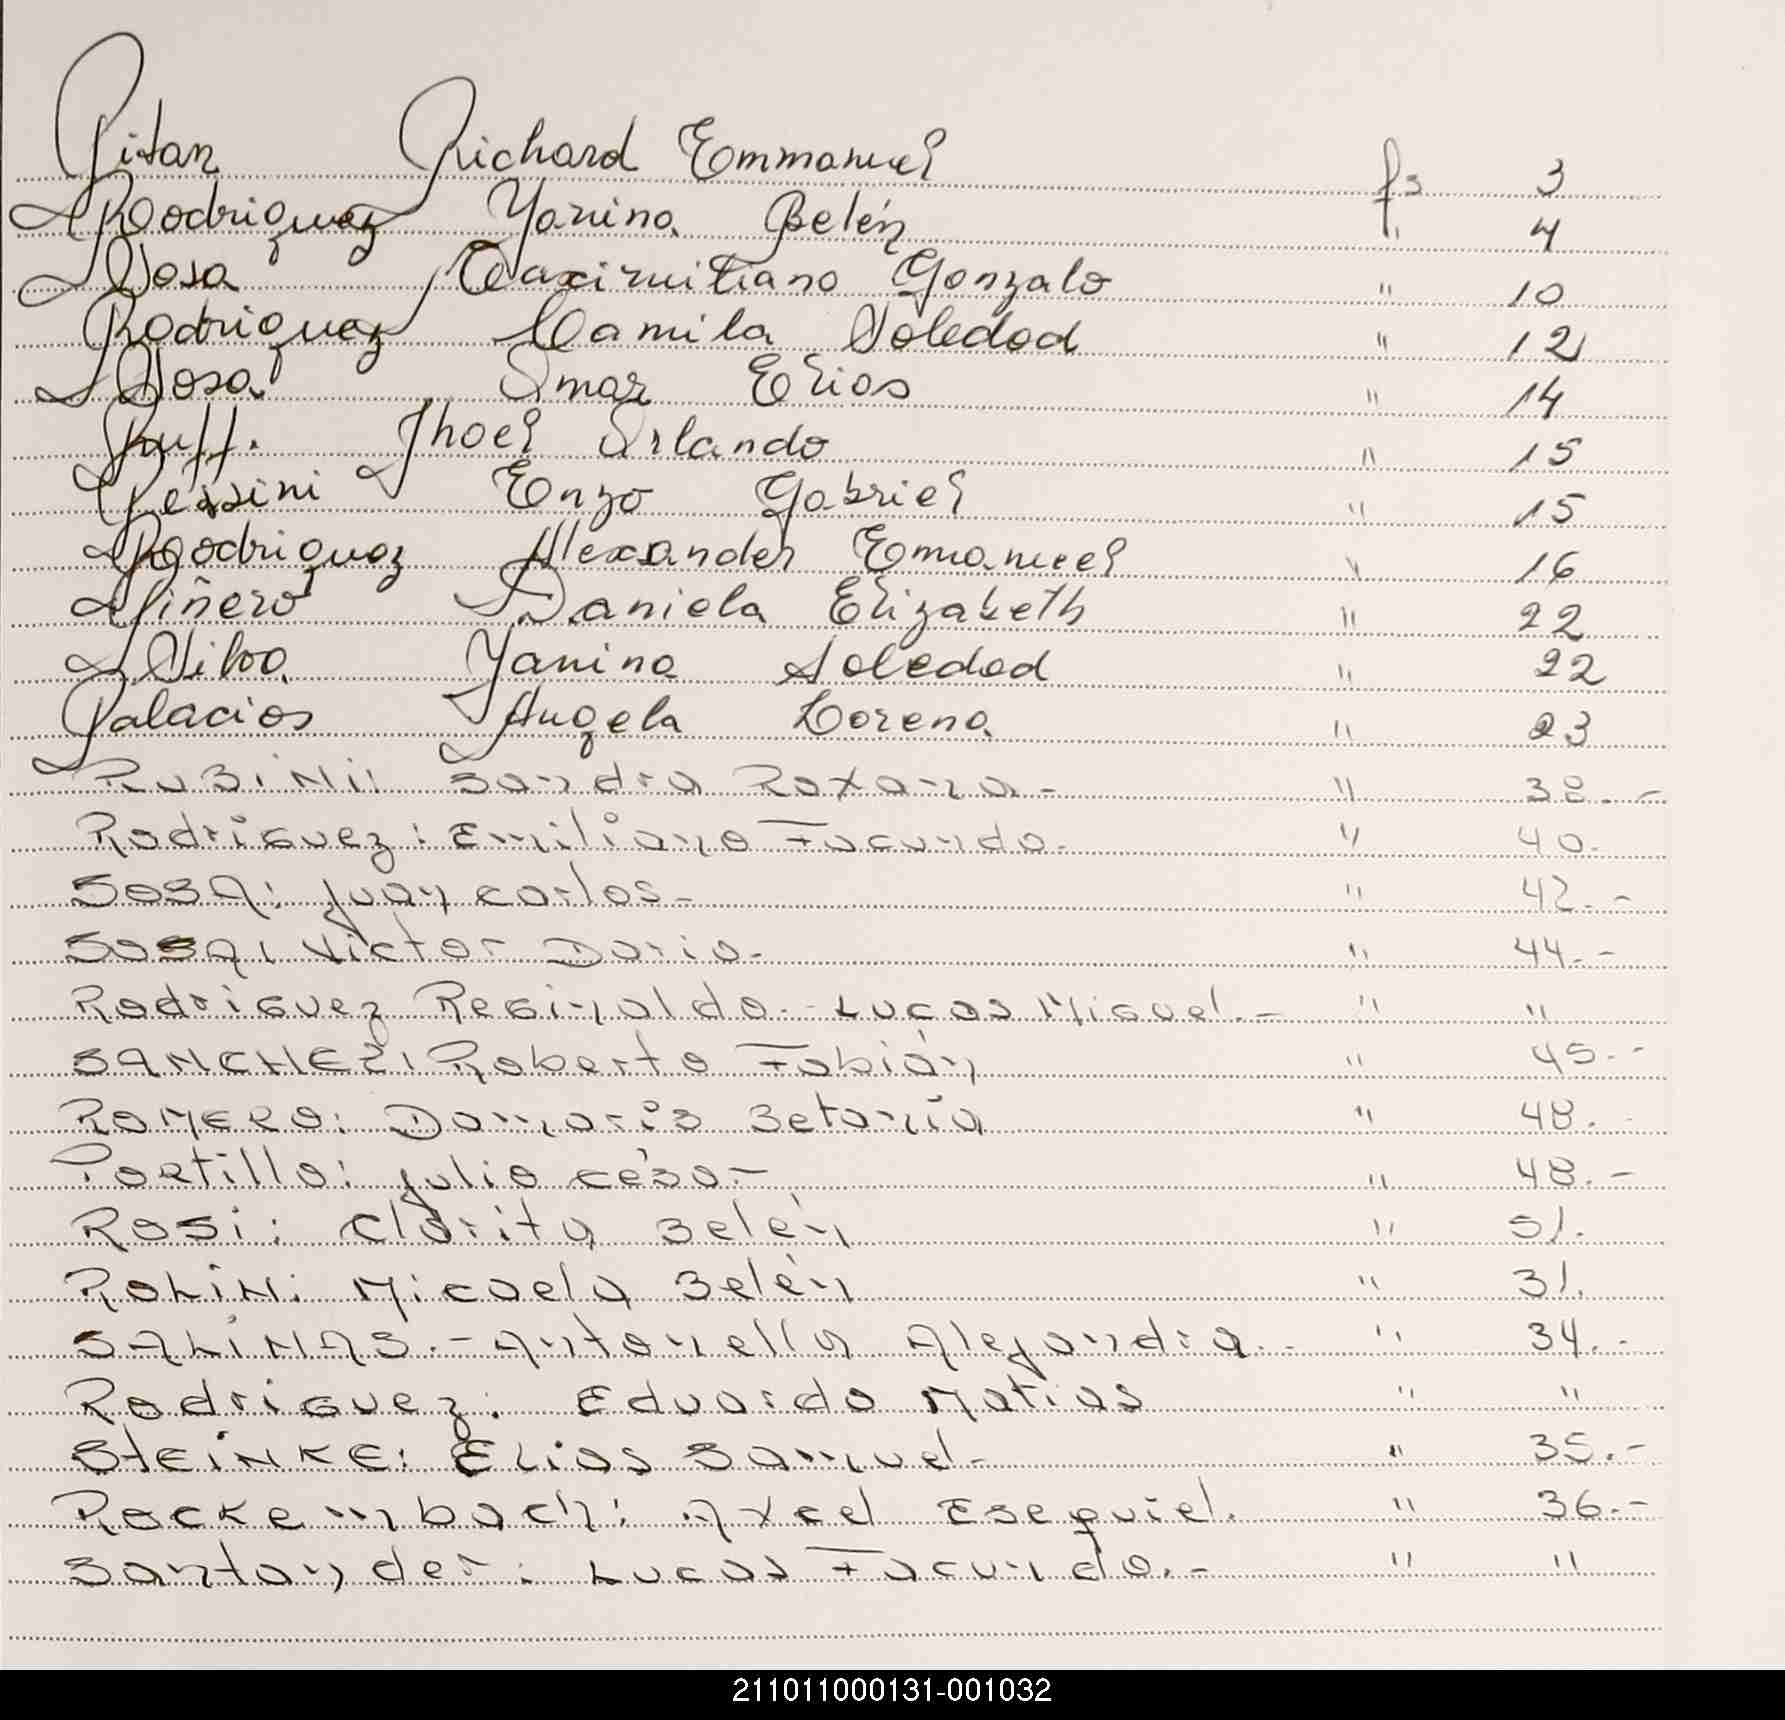 Pitan Richard Emmanuel fs 3
Rodriguez Yanina Belén " 4
Sosa Maximiliano Gonzalo " 10
Rodriguez Camila Soledad " 12
Sosa Omar Elias " 14
Ruff. Jhoel Orlando " 15
Pessini Enzo Gabriel " 15
Rodriguez Alexander Emmanuel " 16
Piñero Daniela Elizabeth " 22
Silva Yanina Soledad " 22
Palacios Angela Lorena " 23
RUBINI: Sandra Roxana.- " 38.-
Rodriguez: Emiliano Facundo. " 40.
SOSA: Juan Carlos.- " 42.-
SOSA: Victor Dario.- " 44.-
Rodriguez Reginaldo.- Lucas Miguel.- " "
SANCHEZ: Roberto Fabián " 45.-
ROMERO: Damaris Betania " 48.-
Portillo: Julio César.- " 48.-
ROSI: Clarita Belén " 51.
ROLIN: Micaela Belén " 31.
SALINAS.- Antonella Alejandra.- " 34.-
Rodriguez: Eduardo Matias " "
STEINKE: Elias Samuel.- " 35.-
Rockembach: Axcel Esequiel. " 36.-
Santander: Lucas Facundo.- " "
211011000131-001032